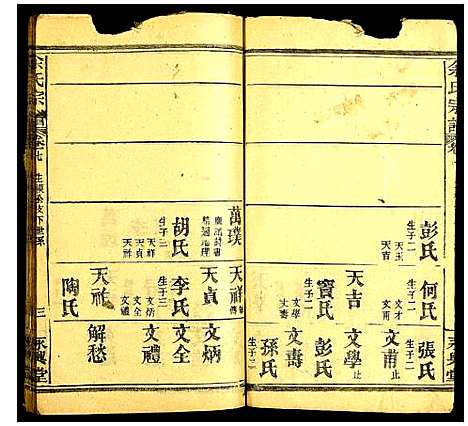 余氏宗譜
彭氏
生子二
天玉
天吉
何氏
生子二
文才
文甫
張氏
生子二
文甫止
天吉
文學止
竇氏
生子二
文學
文壽
彭氏
文壽
孫氏
生子二
萬璞
精通地理
天祥
文炳
胡氏
生子三
天祥
天貞
天祚
天貞
文全
李氏
生子三
文炳
文全
文禮
文禮
天祚
解愁
陶氏
余氏宗譜
卷七
三
永興堂